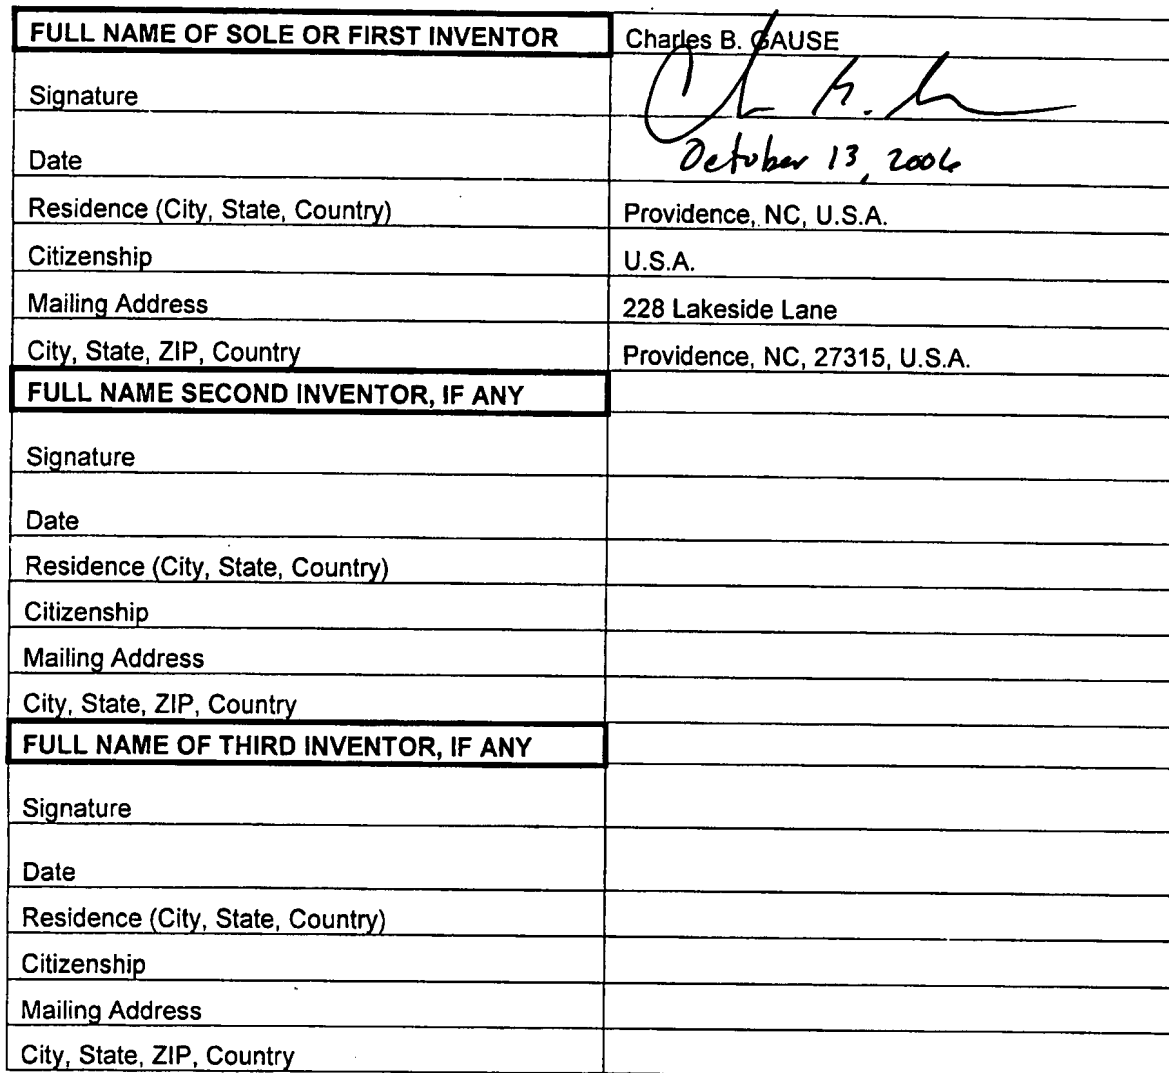 FULL NAME OF SOLE OR FIRST INVENTOR Charles B. GAUSE
Signature
Date October 13, 2006
Residence (City, State, Country) Providence, NC, U.S.A.
Citizenship U.S.A.
Mailing Address 228 Lakeside Lane
City, State, ZIP, Country Providence, NC, 27315, U.S.A.
FULL NAME SECOND INVENTOR, IF ANY
Signature
Date
Residence (City, State, Country)
Citizenship
Mailing Address
City, State, ZIP, Country
FULL NAME OF THIRD INVENTOR, IF ANY
Signature
Date
Residence (City, State, Country)
Citizenship
Mailing Address
City, State, ZIP, Country